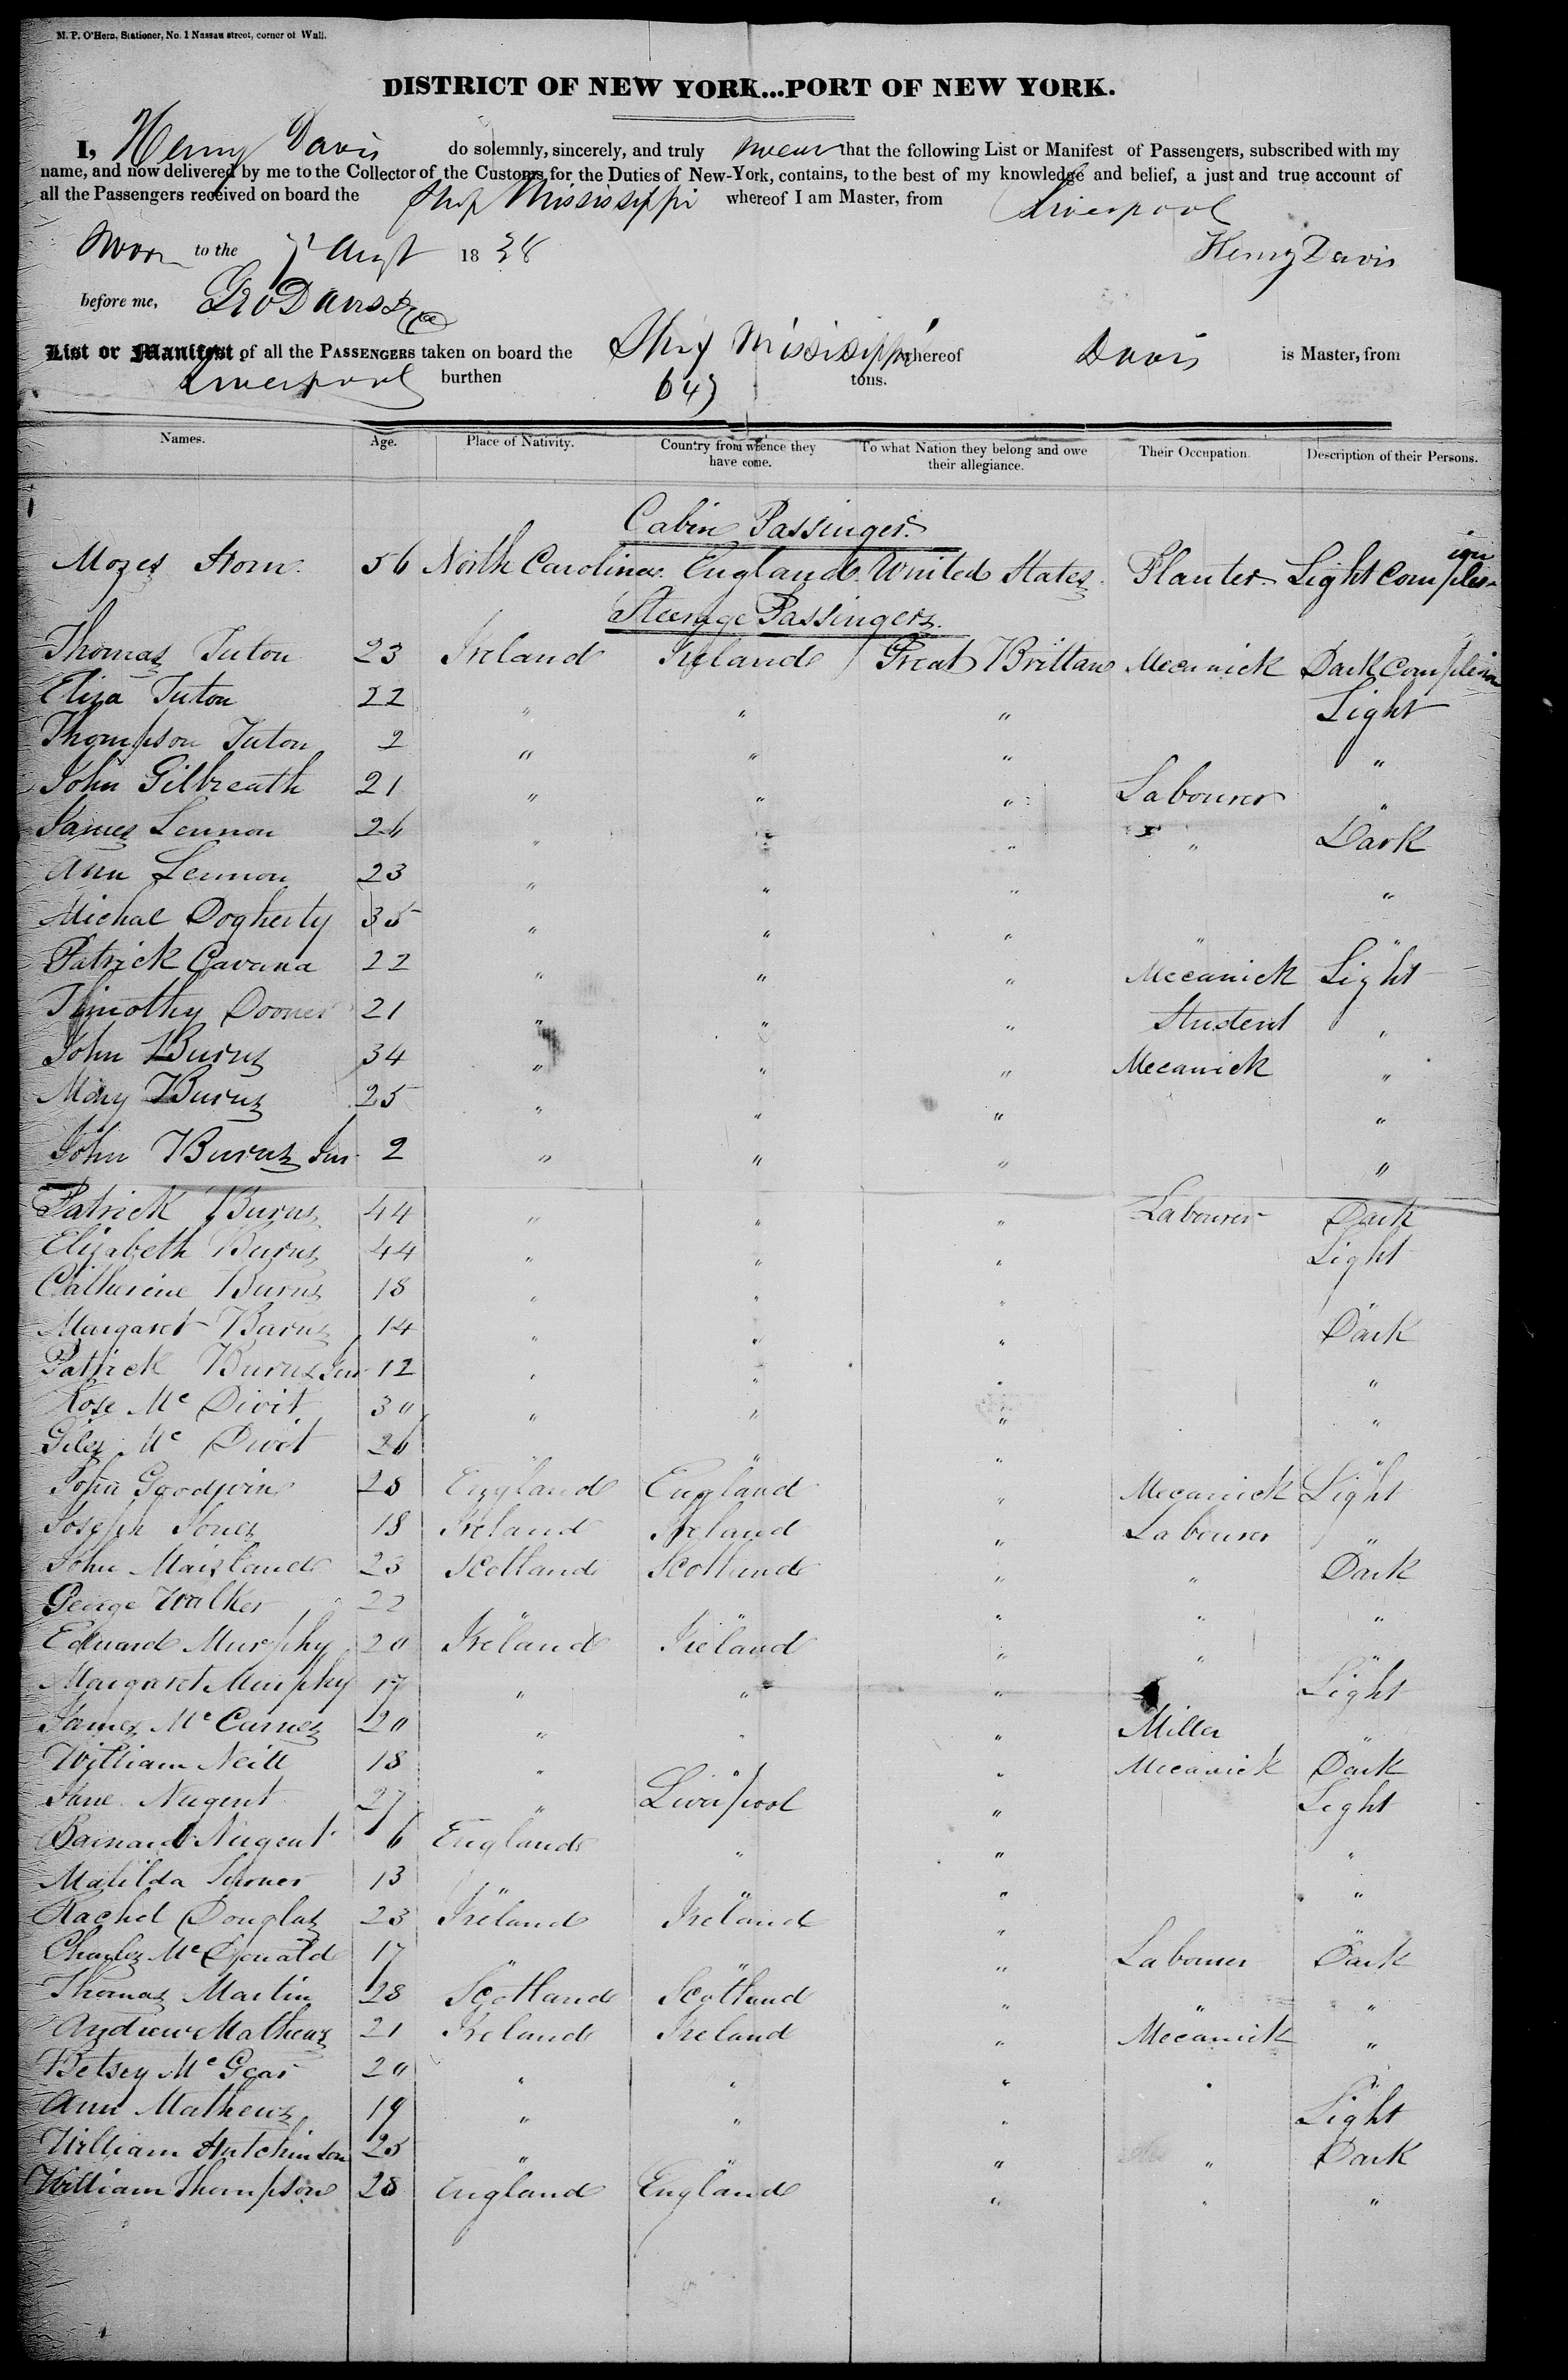 M. P. O'Hern, Stationer, No. 1 Nassau street, corner of Wall.
DISTRICT OF NEW YORK...PORT OF NEW YORK.
I, Henry Davis do solemnly, sincerely, and truly swear that the following List or Manifest of Passengers, subscribed with my
name, and now delivered by me to the Collector of the Customs, for the Duties of New-York, contains, to the best of my knowledge and belief, a just and true account of
all the Passengers received on board the Ship Mississippi whereof I am Master, from Liverpool
Sworn to the 7 Augt 1838 Henry Davis
before me, Geo Davis
List or Manifest, of all the PASSENGERS taken on board the Ship Mississippi whereof Davis is Master, from
Liverpool burthen 647 tons.
Names. Age. Place of Nativity. Country from whence they have come. To what Nation they belong and owe their allegiance. Their Occupation. Description of their Persons.
Cabin Passingers.
Mozes Horn. 56 North Carolina. England. United States. Planter. Light Complexion
Steerage Passingers.
Thomas Tuton 23 Ireland Ireland Great Brittan Mecanick Dark Complexion
Eliza Tuton 22 " " " Light
Thompson Tuton 2 " " " "
John Gilbreath 21 " " " Labourer "
James Lennon 26 " " " " Dark
Ann Lennon 23 " " " "
Michal Dogherty 35 " " " " "
Patrick Cavana 22 " " " Mecanick Light
Timothy Dooner 21 " " " Student "
John Burns 34 " " " Mecanick "
Mary Burns 25 " " " "
John Burns Jun 2 " " " "
Patrick Burns 44 " " " Labourer Dark
Elizabeth Burns 44 " " " Light
Catherine Burns 18 " " " "
Margaret Burns 14 " " " Dark
Patrick Burns Jun 12 " " " "
Rose Mc Divit 30 " " " "
Giles Mc Divit 26 " " " "
John Goodwin 28 England England " Mecanick Light
Joseph Jones 18 Ireland Ireland " Labourer "
John Maizland 23 Scotland Scotland " " Dark
George Walker 22 " " " " "
Edward Murphy 20 Ireland Ireland " " "
Margaret Murphy 17 " " " Light
James Mc Curnes 20 " " " Miller "
William Neill 18 " " " Mecanick Dark
Jane Nugent 27 " Liverpool " Light
Barnard Nugent 6 England " " "
Matilda 13 " " " "
Rachel Douglas 23 Ireland Ireland " "
Charles Mc Donald 17 " " " Labourer Dark
Thomas Martin 28 Scotland Scotland " " "
Andrew Mathews 21 Ireland Ireland " Mecanick "
Betsey Mc Gear 20 " " " " "
Ann Mathews 19 " " " Light
William Hutchinson 25 " " " " Dark
William Thompson 28 England England " " "